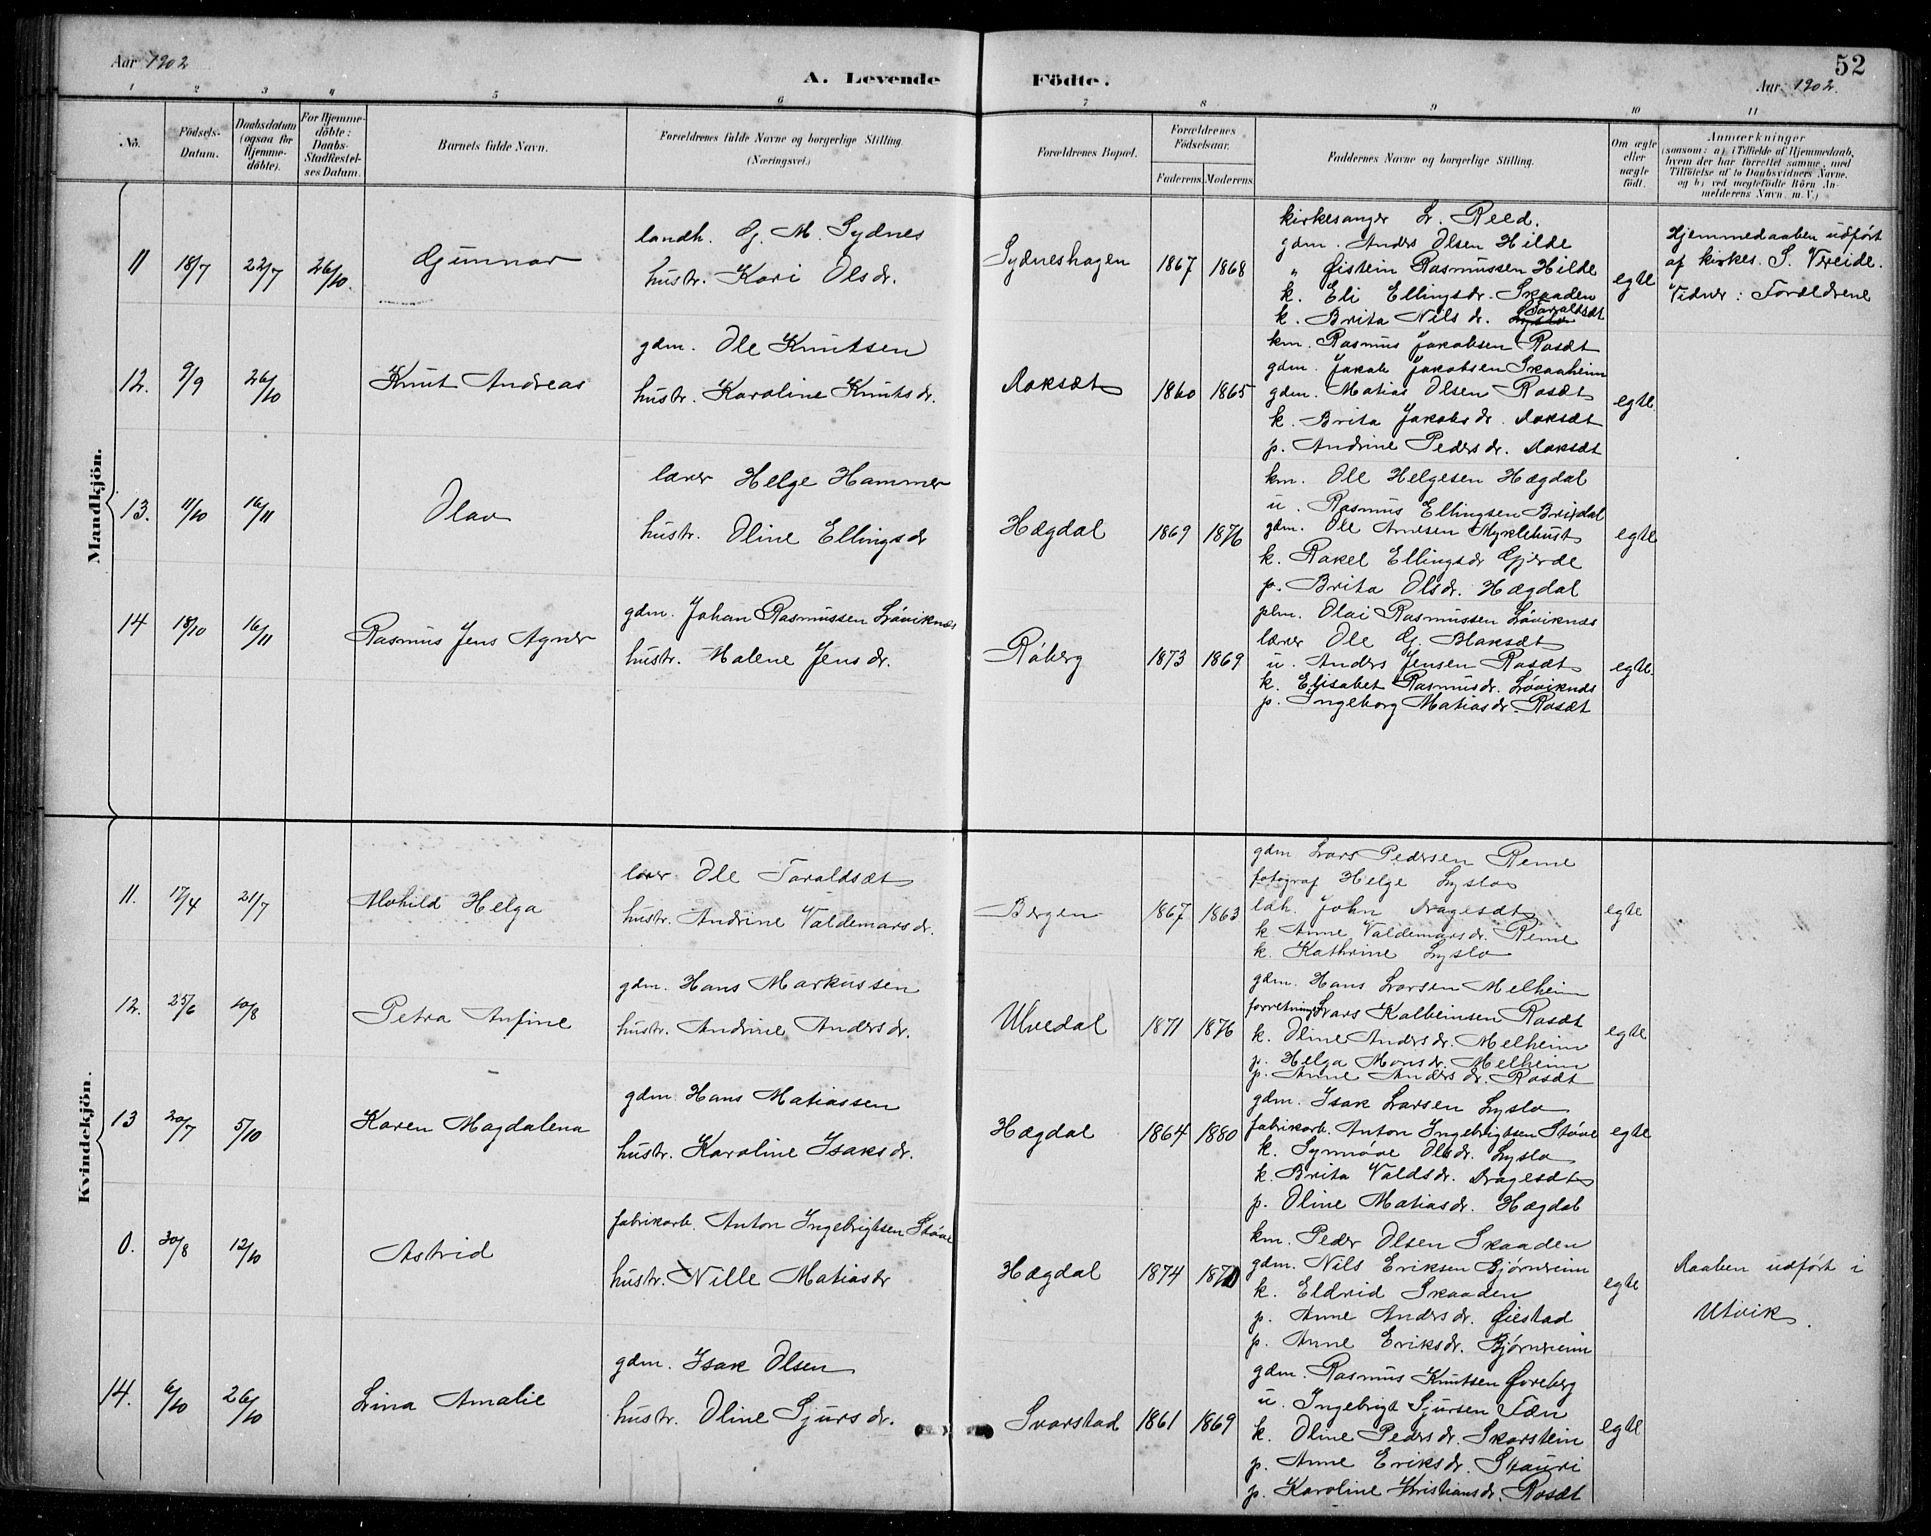 52
Aar 1902
A. Levende Födte.
Aar 1902.
1 2 3 4 5 6 7 8 9 10 11
No.
Födsels-Datum.
Daabsdatum (ogsaa for Hjemme-döbte).
For Hjemme-döbte: Daabs-Stadfæstel-ses Datum.
Barnets fulde Navn.
Forældrenes fulde Navne og borgerlige Stilling. (Næringsvei.)
Forældrenes Bopæl.
Forældrenes Födselsaar.
Faderens Moderens
Faddernes Navne og borgerlige Stilling.
Om ægte eller uægte födt.
Anmærkninger
(saasom: a) i Tilfælde af Hjemmedaab, hvem der har forrettet samme, med Tilföielse af to Daabsvidners Navne, og b) ved uægtefödte Börn An-melderens Navn m. V.)
Mandkjön.
11 18/7 22/7 26/10. Gunnar
landh. G. M. Sydnes
hustr. Kari Olsdr.
Sydneshagen 1867 1868
kirkesanger L. Reed.
gdm. Anders Olsen Hilde
" Øistein Rasmussen Hilde
k. Eli Ellingsdr. Skaaden
k. Brita Nilsdr. Taraldsæt
egte
Hjemmedaaben udført
af kirkes. S. Vereide.
Vidner: Forældrene
12. 9/9 26/10 Knut Andreas
gdm. Ole Knutsen
hustr. Karoline Knutsdr.
Aaksæt 1860 1865
km. Rasmus Jakobsen Rosæt
gdm. Jakob Jakobsen Skaaheim
gdm. Matias Olsen Rosæt
k. Brita Jakobsdr. Aaksæt
p. Andrine Pedersdr. Aaksæt
egte.
13. 11/10 16/11 Olav
lærer Helge Hammer
hustr. Oline Ellingsdr
Hægdal 1869 1876
km. Ole Helgesen Hægdal
u. Rasmus Ellingsen Brixdal
gdm. Ole Arnesen Myklebust
k. Rakel Ellingsdr Gjerde
p. Brita Olsdr. Hægdal
egte
14 18/10 16/11 Rasmus Jens Agner
gdm. Johan Rasmussen Løviknæs
hustr. Malene Jensdr.
Røberg 1873 1869
plm. Olai Rasmussen Løviknæs
lærer Ole G. Maksæt
u. Anders Jensen Rosæt
k. Elisabet Rasmusdr. Løviknæs
p. Ingeborg Matiasdr. Rosæt
egte.
Kvindekjön.
11. 17/4 21/7 Alvhild Helga
lærer Ole Taraldsæt
hustr. Andrine Valdemarsdr.
Bergen 1867 1863
gdm Lars Pedersen Reme
fotograf Helge Lyslo
ldh. John Dragesæt
k Anne Valdemarsdr. Reme
k. Kathrine Lyslo
egte
12. 25/6 10/8 Petra Anfine
gdm. Hans Markussen
hustr. Andrine Andersdr.
Ulvedal 1871 1876
gdm. Hans Larsen Melheim
forretningsf. Lars Kolbeinsen Rosæt
k. Oline Andersdr. Melheim
p. Helga Monsdr. Melheim
p. Anne Andersdr. Rosæt
egte
13 20/7 5/10 Karen Magdalena
gdm. Hans Matiassen
hustr. Karoline Isaksdr.
Hægdal 1864 1880
gdm. Isak Larsen Lyslo
fabrikarb. Anton Ingebrigtsen Støve
k. Synnøve Olsdr. Lyslo
k. Brita Valdsdr. Dragesæt
p. Oline Matiasdr. Hægdal
egte
0. 30/8 12/10 Astrid
fabrikarb. Anton Ingebrigtsen Støve
hustr. Nille Matiasdr
Hægdal 1874 1870
km. Peder Olsen Skaaden
gdm. Nils Eriksen Bjørnreim
k. Eldrid Skaaden
p. Anne Andersdr. Øiestad
p. Anne Eriksdr. Bjørnreim
egte
Daaben udført i
Utvik.
14. 6/10 26/10 Lina Amalie
gdm. Isak Olsen
hustr. Oline Sjursdr.
Svarstad 1861 1869
gdm. Rasmus Knutsen Øvreberg
u. Ingebrigt Sjursen Fæn
k. Oline Pedersdr. Skarstein
p. Anne Eriksdr. Stauri
p. Karoline Kristiansdr. Rosæt
egte